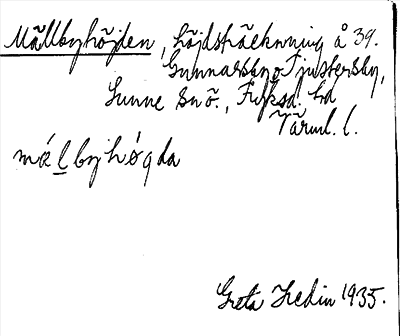 Mällbyhöjden, höjdsträckning å 39.
Gunnarsby o Tjustersby,
Sunne sn ö., Fryksd. hd
Värml. l.
mälbyhögda
Greta Hedin 1935.